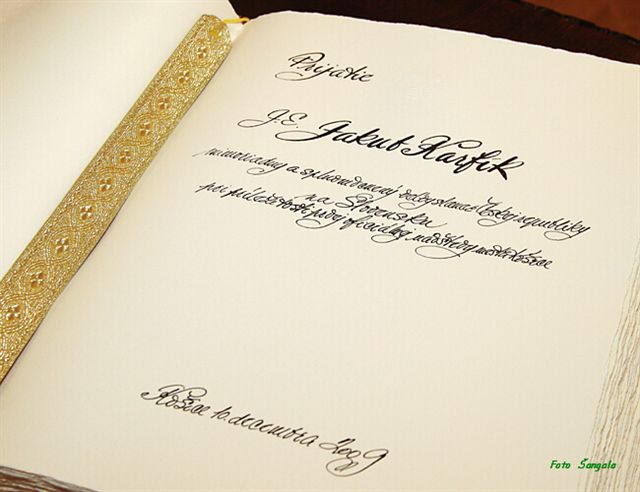 Prijatie
J.E. Jakub Karfík
mimoriadny a splnomocnený veľvyslanec Českej republiky
na Slovensku
pri príležitosti prvej oficiálnej návštevy mesta Košice
Košice 10. decembra 2009
Foto Šangala